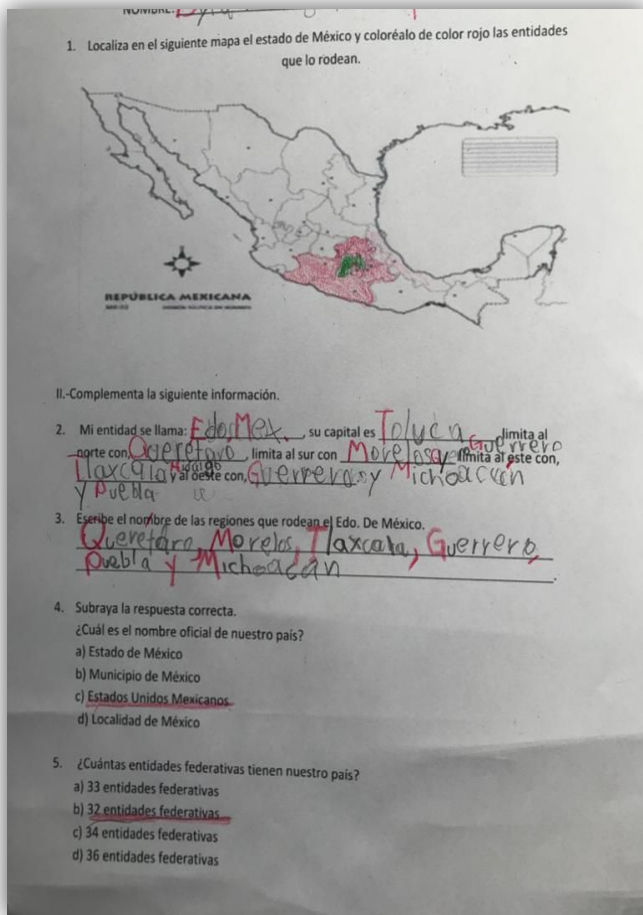 NOMBRE:
1. Localiza en el siguiente mapa el estado de México y coloréalo de color rojo las entidades
que lo rodean.
REPÚBLICA MEXICANA
II.-Complementa la siguiente información.
2. Mi entidad se llama: Edo. Mex. , su capital es Toluca limita al
norte con, Querétaro , limita al sur con Morelos y Guerrero limita al este con,
Tlaxcala Hidalgo y al oeste con, Guerrero y Michoacán
y Puebla
3. Escribe el nombre de las regiones que rodean el Edo. De México.
Querétaro, Morelos, Tlaxcala, Guerrero,
Puebla y Michoacán .
4. Subraya la respuesta correcta.
¿Cuál es el nombre oficial de nuestro país?
a) Estado de México
b) Municipio de México
c) Estados Unidos Mexicanos
d) Localidad de México
5. ¿Cuántas entidades federativas tienen nuestro país?
a) 33 entidades federativas
b) 32 entidades federativas
c) 34 entidades federativas
d) 36 entidades federativas